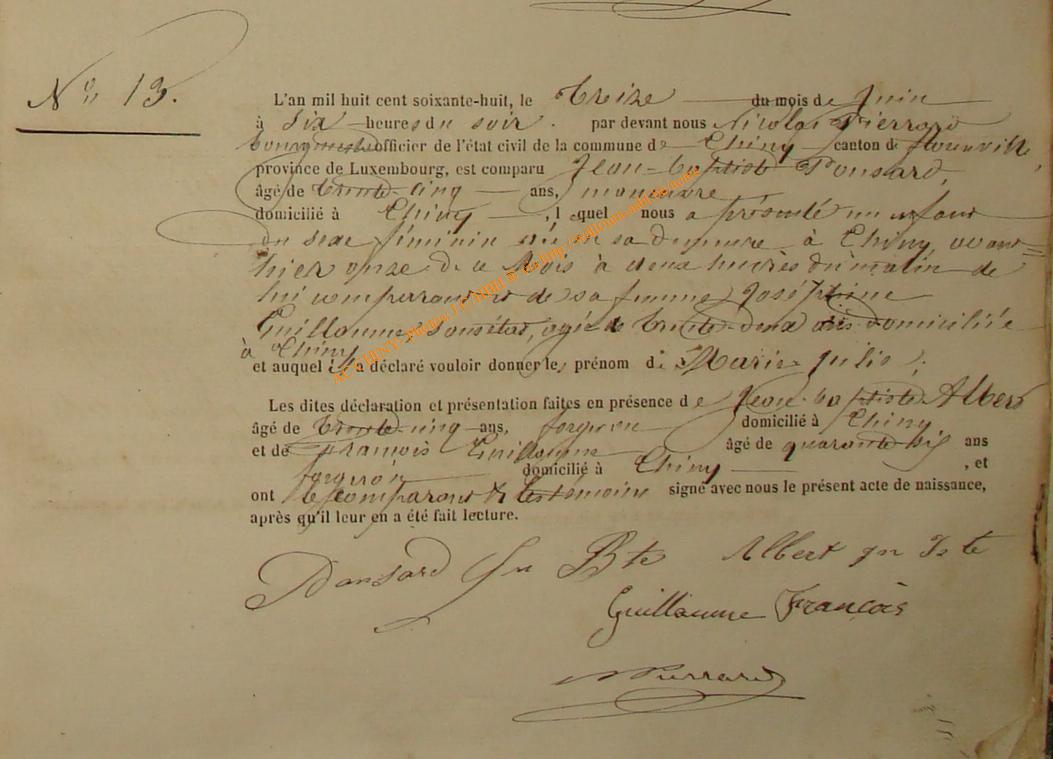 No 13.
L'an mil huit cent soixante-huit, le treize du mois de Juin
à six heures du soir. par devant nous Nicolas Pierrard
bourgmestre officier de l'état civil de la commune de Chiny canton de florenville
province de Luxembourg, est comparu Jean-baptiste Ponsard,
âgé de trente-cinq ans, manœuvre
domicilié à Chiny, lequel nous a présenté un enfant
du sexe féminin né en sa demeure à Chiny, avant
hier onze de ce mois à deux heures du matin de
lui comparrant et de sa femme Joséphine
Guillaume, son état, agée de trente-deux ans domiciliée
à Chiny
et auquel il a déclaré vouloir donner les prénom de Marie Julie;
Les dites déclaration et présentation faites en présence de Jean-baptiste Albert
âgé de trente-cinq ans, forgeron domicilié à Chiny
et de François Guillaume âgé de quarante-six ans
forgron domicilié à Chiny, et
ont le comparant & les témoins signé avec nous le présent acte de naissance,
après qu'il leur en a été fait lecture.
Ponsard Jn Bte Albert Jn Bte
Guillaume François
Pierrard